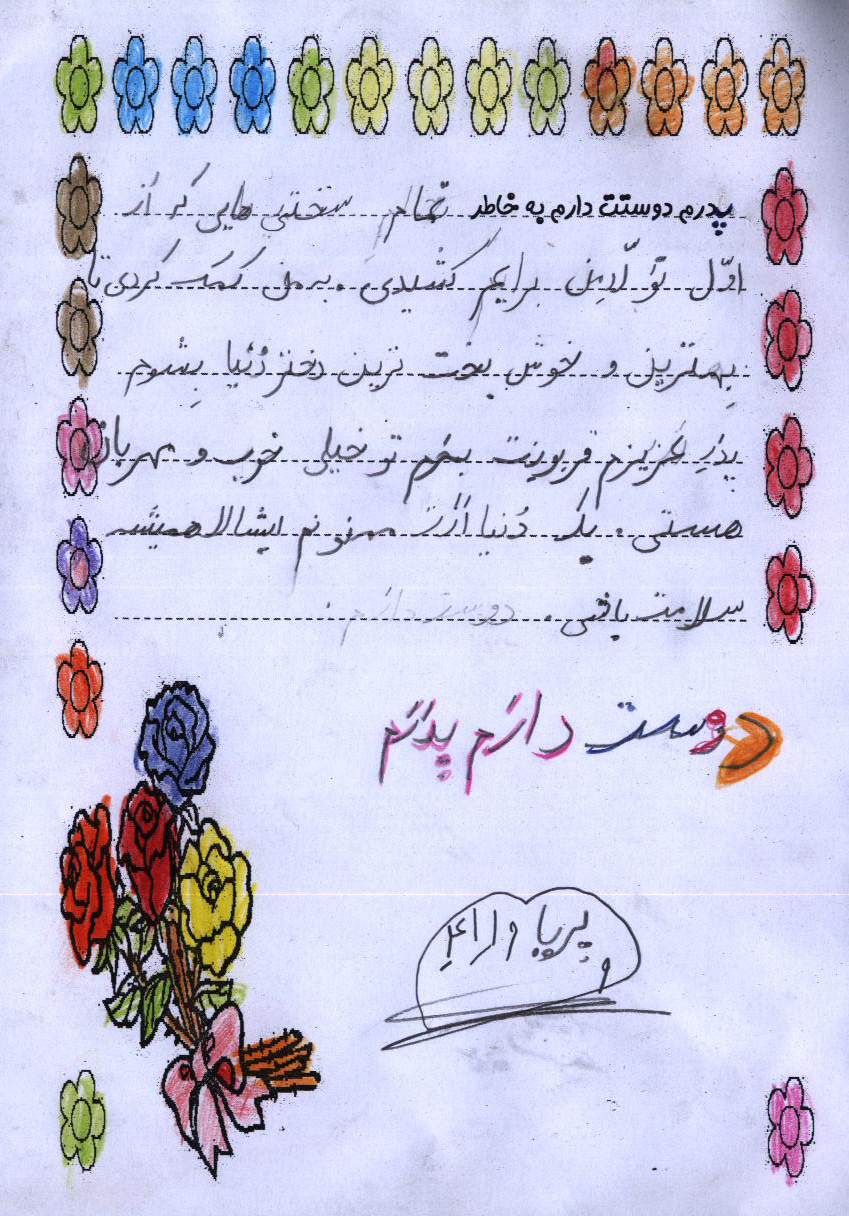 پدرم دوستت دارم به خاطر تمام سختی هایی که از
اوّل تَوَلّدِمن برایم کشیدی . به من کمک کردی تا
بِهترین و خوش بخت ترین دختر دُنیا بِشوم
پِدَرِ عَزیزم قربونت بِرَم تو خیلی خوب و مهربان
هستی . یِک دُنیا اَزَت ممنونم ایشالا همیشه
سلامت باشی . دوست دارَم .
دوست دارَم پِدَرَم
پریا